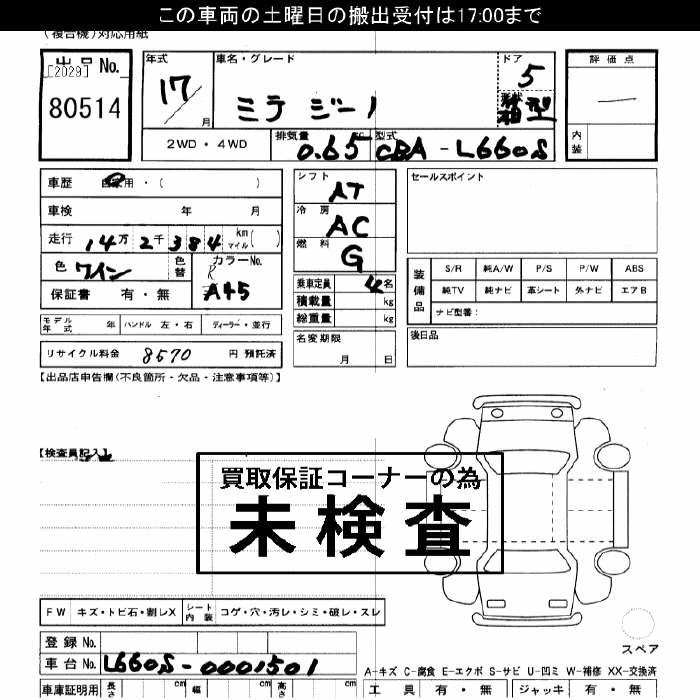 この車両の土曜日の搬出受付は17:00まで
(複合機)対応用紙
出品 No.
[2029]
80514
年式 17 月
車名・グレード ミラ ジーノ
ドア 5
形状 箱型
評価点 —
内装
2WD・4WD
排気量 0.65 cc
型式 CBA-L660S
車歴 自家用・( )
車検 年 月
走行 14万 2千384 km マイル( )
色 ワイン 色替
カラーNo. R A45
保証書 有・無
シフト AT
冷房 AC
燃料 G
乗車定員 4名
積載量 kg
総重量 kg
セールスポイント
装備品 S/R 純A/W P/S P/W ABS
純TV 純ナビ 革シート 外ナビ エアB
ナビ型番:
モデル年式 年 ハンドル 左・右 ディーラー・並行
名変期限 月 日
後日品
リサイクル料金 8570 円 預託済
【出品店申告欄(不良箇所・欠品・注意事項等)】
【検査員記入】
買取保証コーナーの為
未検査
FW キズ・トビ石・割レX シート内装 コゲ・穴・汚レ・シミ・破レ・スレ
スペア
登録 No.
車台 No. L660S-0001501
A-キズ C-腐食 E-エクボ S-サビ U-凹ミ W-補修 XX-交換済
車庫証明用 長さ cm 幅 cm 高さ cm
工具 有・無 ジャッキ 有・無